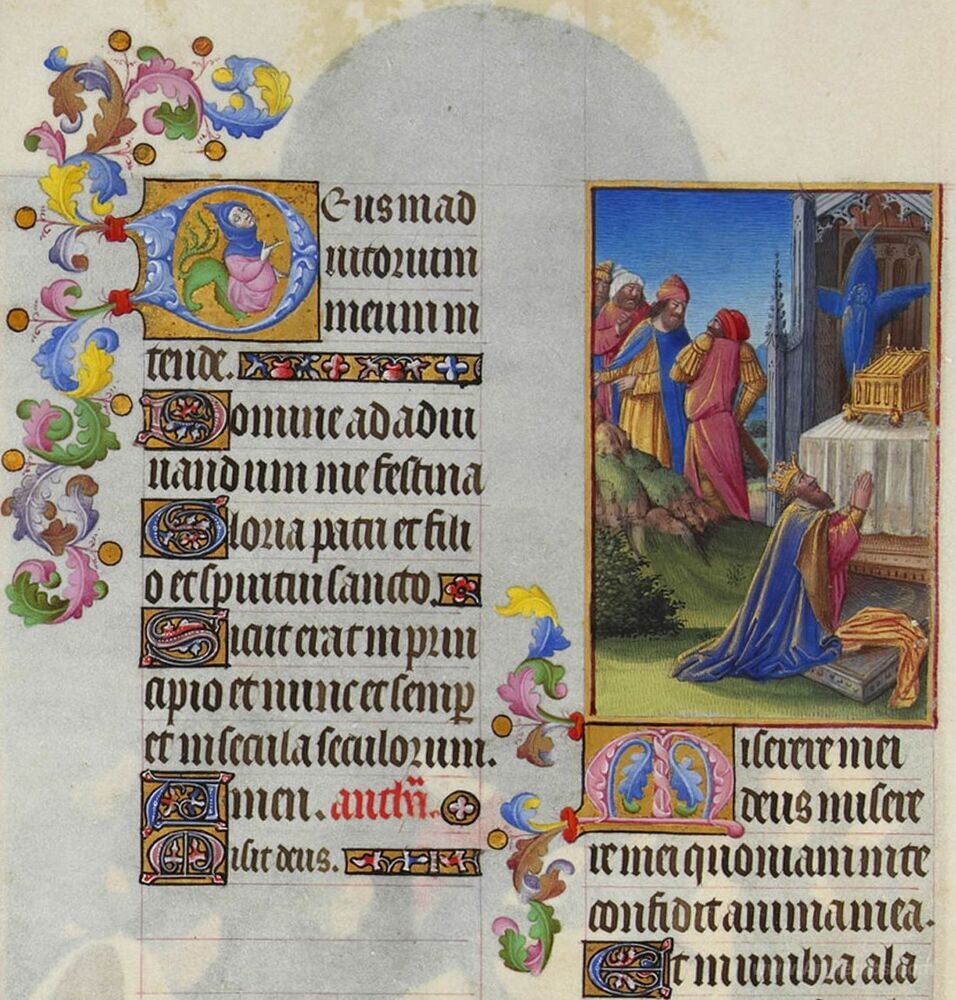 Deus in ad
iutorium
meum in
tende.
Domine ad adiu
uandum me festina
Gloria patri et fili
o et spiritui sancto.
Sicut erat in prin
cipio et nunc et semꝑ
et in secula seculorum.
Amen. anth̃a.
Misit deus.
Miserere mei
deus misere
re mei quoniam in te
confidit anima mea.
Et in umbra ala